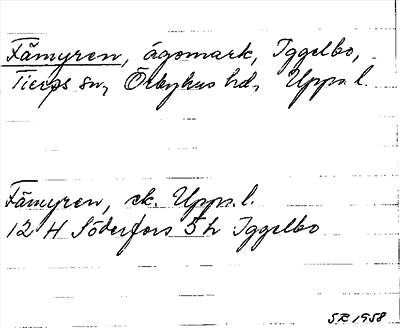 Fämyren, ägomark, Iggelbo,
Tierps sn, Örbyhus hd, Upps. l.
Fämyren, ek. Upps. l.
12 H Söderfors 5 h Iggelbo
SR 1958